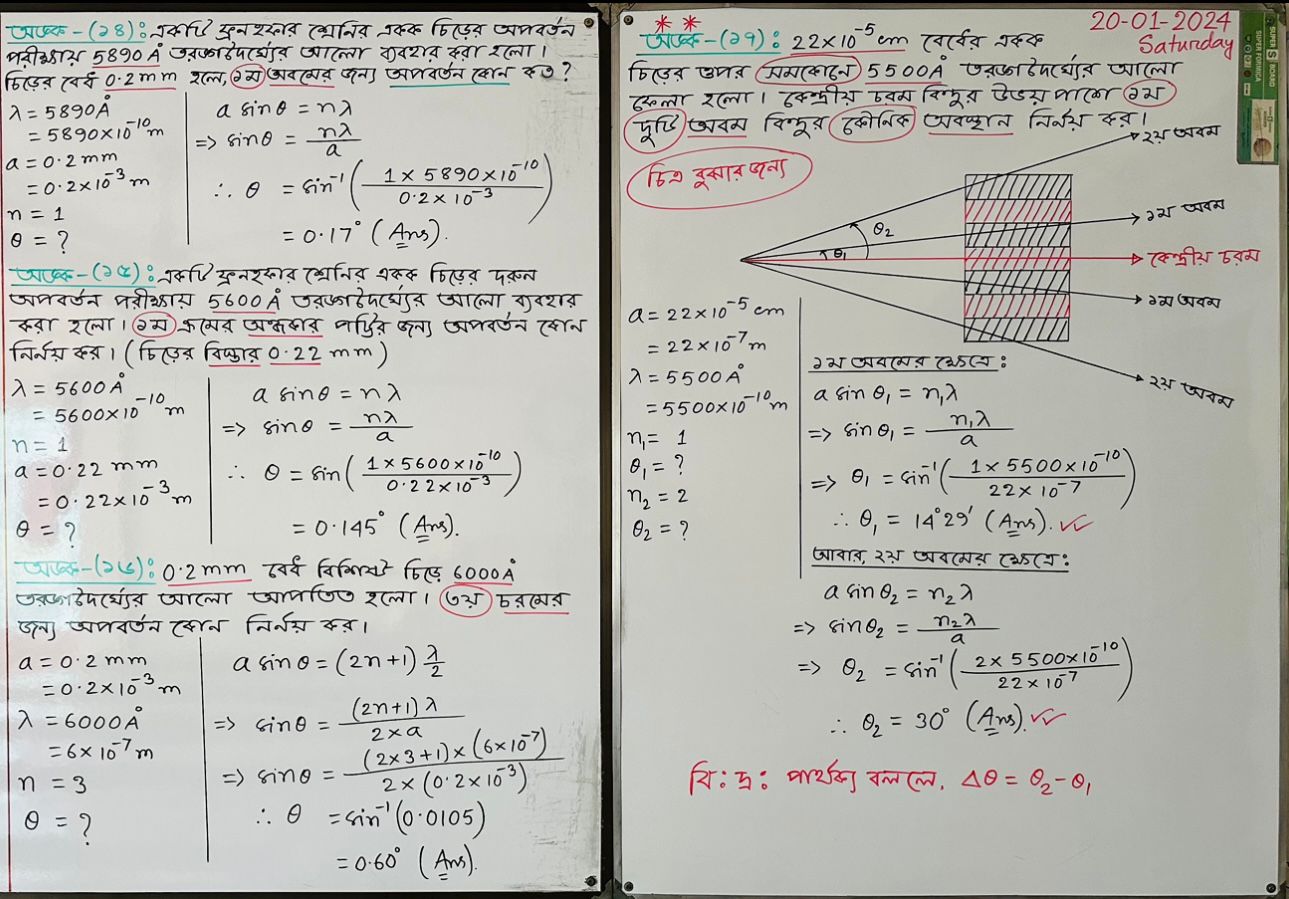 অঙ্ক-(১৪): একটি ফ্রনহফার শ্রেনির একক চিড়ের অপবর্তন
পরীক্ষায় 5890 Å তরঙ্গদৈর্ঘ্যের আলো ব্যবহার করা হলো।
চিড়ের বেধ 0.2mm হলে, ১ম অবমের জন্য অপবর্তন কোন কত ?
λ = 5890Å
= 5890×10⁻¹⁰ m
a = 0.2 mm
= 0.2×10⁻³ m
n = 1
θ = ?
a sinθ = nλ
=> sinθ = nλ/a
∴ θ = sin⁻¹(1 × 5890×10⁻¹⁰/0.2×10⁻³)
= 0.17° (Ans).
অঙ্ক-(১৫): একটি ফ্রনহফার শ্রেনির একক চিড়ের দরুন
অপবর্তন পরীক্ষায় 5600 Å তরঙ্গদৈর্ঘ্যের আলো ব্যবহার
করা হলো। ১ম ক্রমের অন্ধকার পট্টির জন্য অপবর্তন কোন
নির্নয় কর। (চিড়ের বিস্তার 0.22 mm)
λ = 5600Å
= 5600×10⁻¹⁰ m
n = 1
a = 0.22 mm
= 0.22×10⁻³ m
θ = ?
a sinθ = nλ
=> sinθ = nλ/a
∴ θ = sin(1×5600×10⁻¹⁰/0.22×10⁻³)
= 0.145° (Ans).
অঙ্ক-(১৬): 0.2mm বেধ বিশিষ্ট চিড়ে 6000Å
তরঙ্গদৈর্ঘ্যের আলো আপতিত হলো। ৩য় চরমের
জন্য অপবর্তন কোন নির্নয় কর।
a = 0.2 mm
= 0.2×10⁻³ m
λ = 6000Å
= 6×10⁻⁷ m
n = 3
θ = ?
a sinθ = (2n+1) λ/2
=> sinθ = (2n+1) λ/2×a
=> sinθ = (2×3+1)×(6×10⁻⁷)/2×(0.2×10⁻³)
∴ θ = sin⁻¹(0.0105)
= 0.60° (Ans).
20-01-2024
Saturday
SUPER BOARD
SUPER FORMICA
** অঙ্ক-(১৭): 22×10⁻⁵ cm বেধের একক
চিড়ের ওপর সমকোনে 5500Å তরঙ্গদৈর্ঘ্যের আলো
ফেলা হলো। কেন্দ্রীয় চরম বিন্দুর উভয় পাশে ১ম
দুটি অবম বিন্দুর কৌনিক অবস্থান নির্নয় কর।
চিত্র বুঝার জন্য
২য় অবম
১ম অবম
কেন্দ্রীয় চরম
১ম অবম
২য় অবম
θ₂
θ₁
a = 22×10⁻⁵ cm
= 22×10⁻⁷ m
λ = 5500Å
= 5500×10⁻¹⁰ m
n₁ = 1
θ₁ = ?
n₂ = 2
θ₂ = ?
১ম অবমের ক্ষেত্রে:
a sinθ₁ = n₁λ
=> sinθ₁ = n₁λ/a
=> θ₁ = sin⁻¹(1×5500×10⁻¹⁰/22×10⁻⁷)
∴ θ₁ = 14°29′ (Ans). ✓✓
আবার, ২য় অবমের ক্ষেত্রে:
a sinθ₂ = n₂λ
=> sinθ₂ = n₂λ/a
=> θ₂ = sin⁻¹(2×5500×10⁻¹⁰/22×10⁻⁷)
∴ θ₂ = 30° (Ans). ✓✓
বি: দ্র: পার্থক্য বললে, Δθ = θ₂ - θ₁